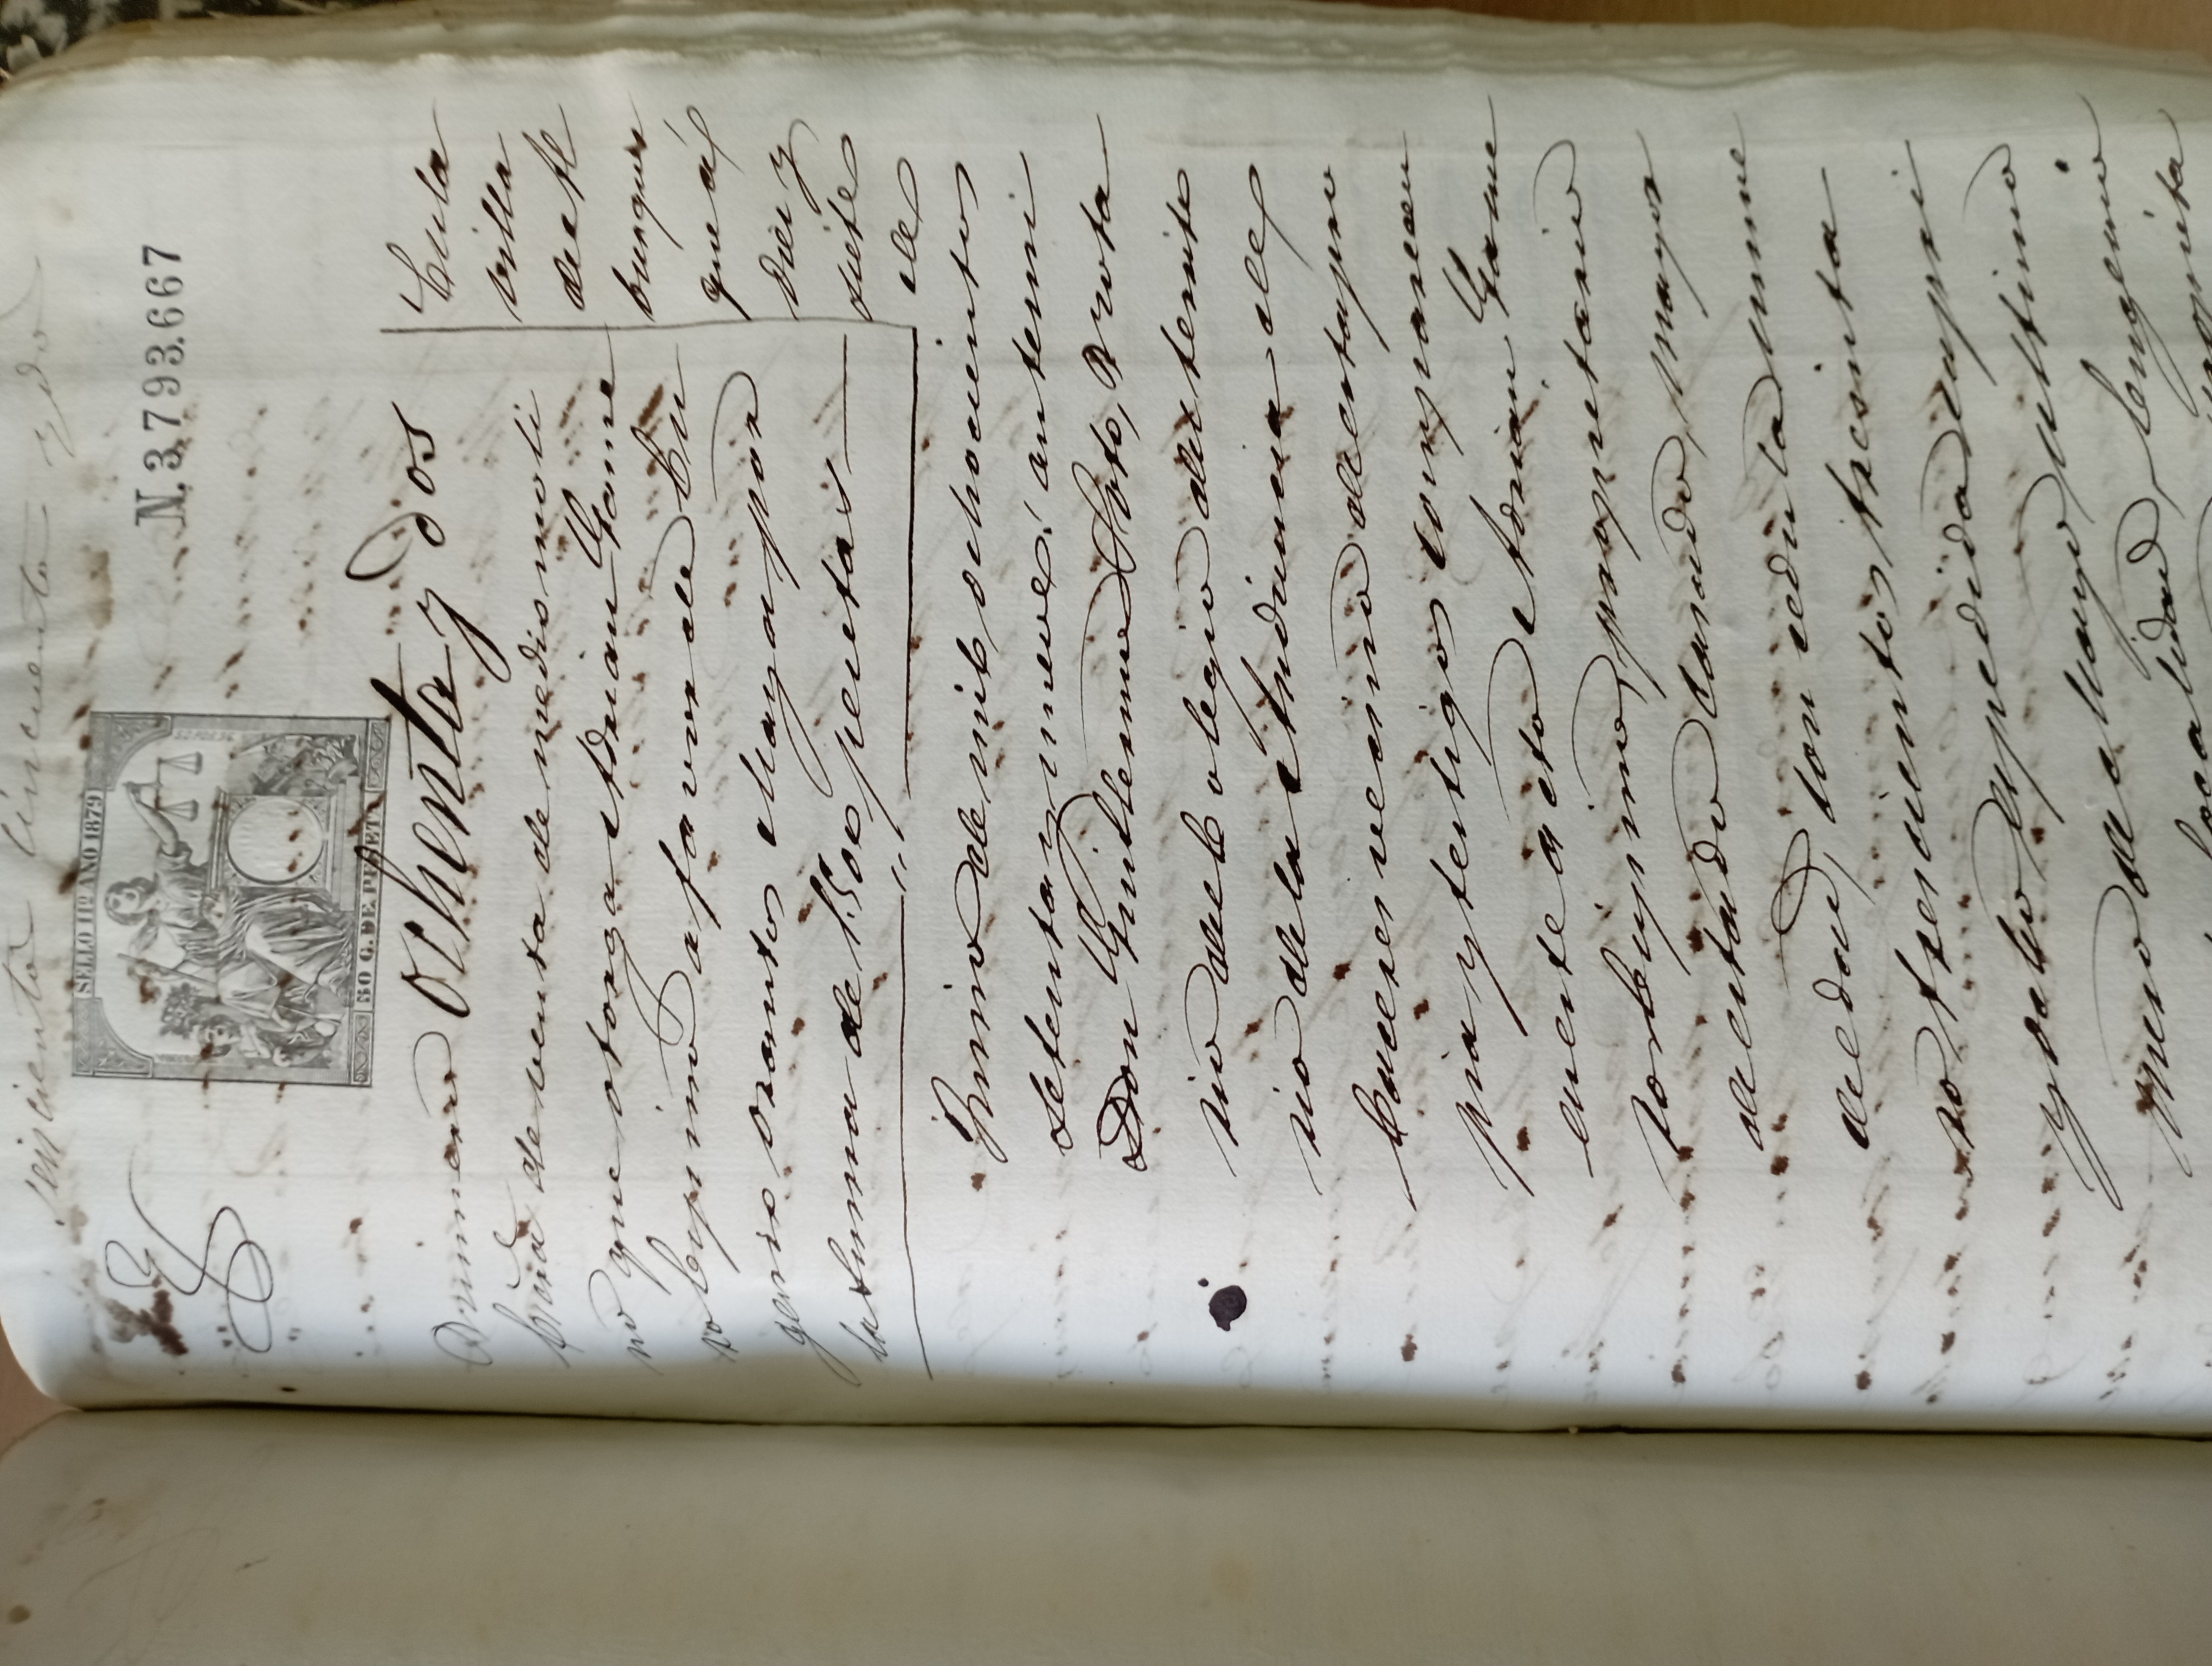 seiscientos cincuenta y dos
SELLO 11º AÑO 1879
N. 3.793.667
50 C. DE PESETA
Numero Ochenta y dos
Escrã de venta de medio moli
no que otorga Adrian Game
ro Espino a favor de Eu
genio Orantos Maya por
la suma de 1.500 pesetas
En la
villa
de Al
burquer
que á
diez y
siete
de
Junio de mil ochocientos
setenta y nueve: ante mi
Don Guillermo Soto, Nota
rio del Colegio del territo
rio de la Audiencia de
Caceres vecino de esta pro
pia y testigos comparecen
en este acto Adrian Game
ro Espino, propietario
de estado casado, mayor
de edad, con cedula nume
ro trescientos treinta
y ocho espedida en pri
mero de Mayo ultimo
localidad, Eugenio
propieta